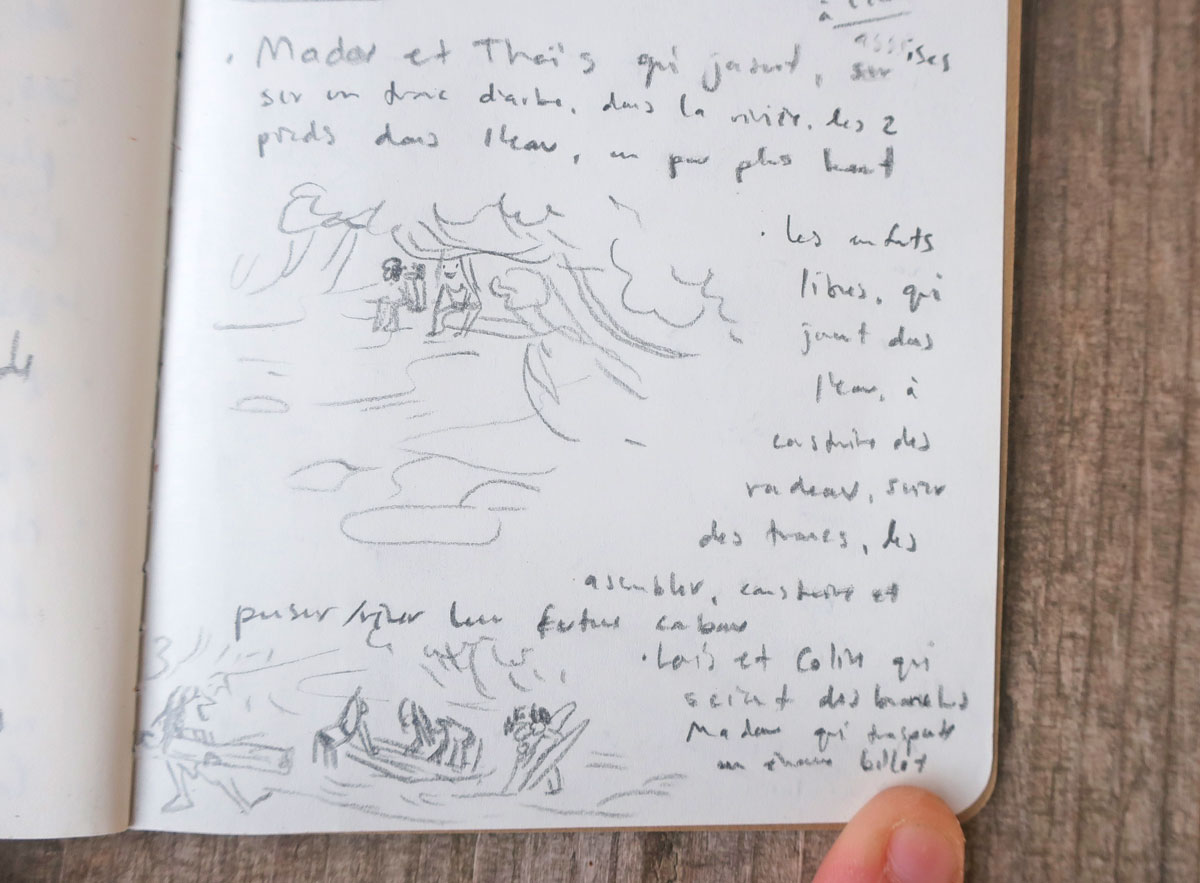 à
assises
. Mador et Thaïs qui jasent, sur
sur un tronc d'arbre, dans la rivière. les 2
pieds dans l'eau, un peu plus haut
. les enfants
libres, qui
jouent dans
l'eau, à
construire des
radeau, suivre
des traces, les
assembler, construire et
penser/rêver leur future cabane
. Laïs et Colin qui
scient des branches
Mador qui transporte
un énorme billot